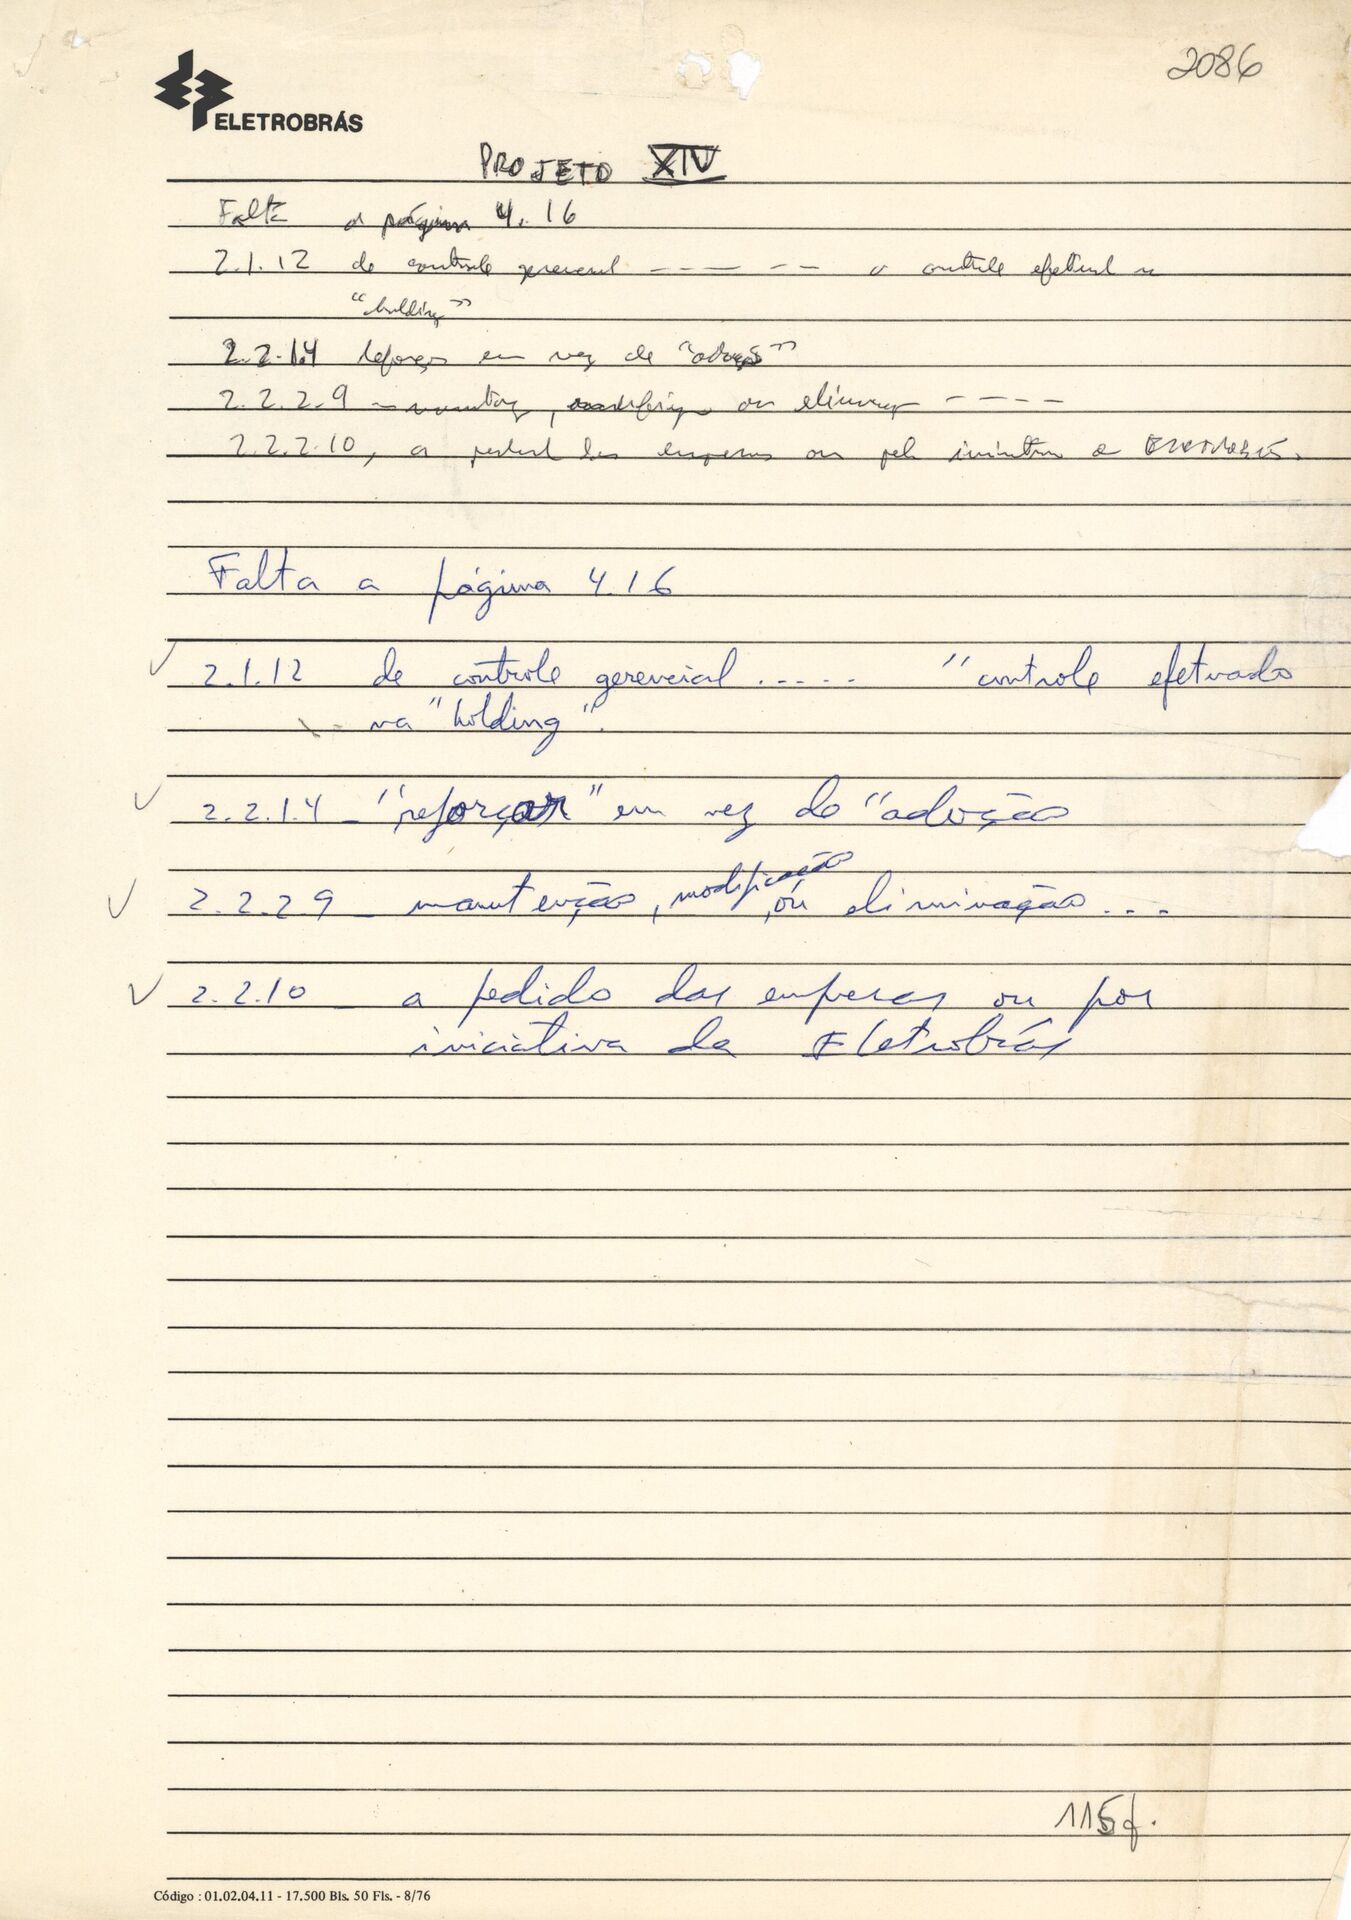 2086
ELETROBRÁS
PROJETO XIV
Falta a página 4.16
2.1.12 de controle gerencial ----- o controle
"holding"
2.2.1.4 reforços em vez de
2.2.2.9 - ou eliminar ----
2.2.2.10, a das empresas ou pela ELETROBRÁS.
Falta a página 4.16
2.1.12 de controle gerencial ..... "controle efetuado
na "holding".
2.2.1.4 - "reforçar" em vez de "adoção
2.2.2.9 - manutenção, modificação, ou eliminação...
2.2.10 - a pedido das empresas ou por
iniciativa da Eletrobrás
115f.
Código : 01.02.04.11 - 17.500 Bls. 50 Fls. - 8/76